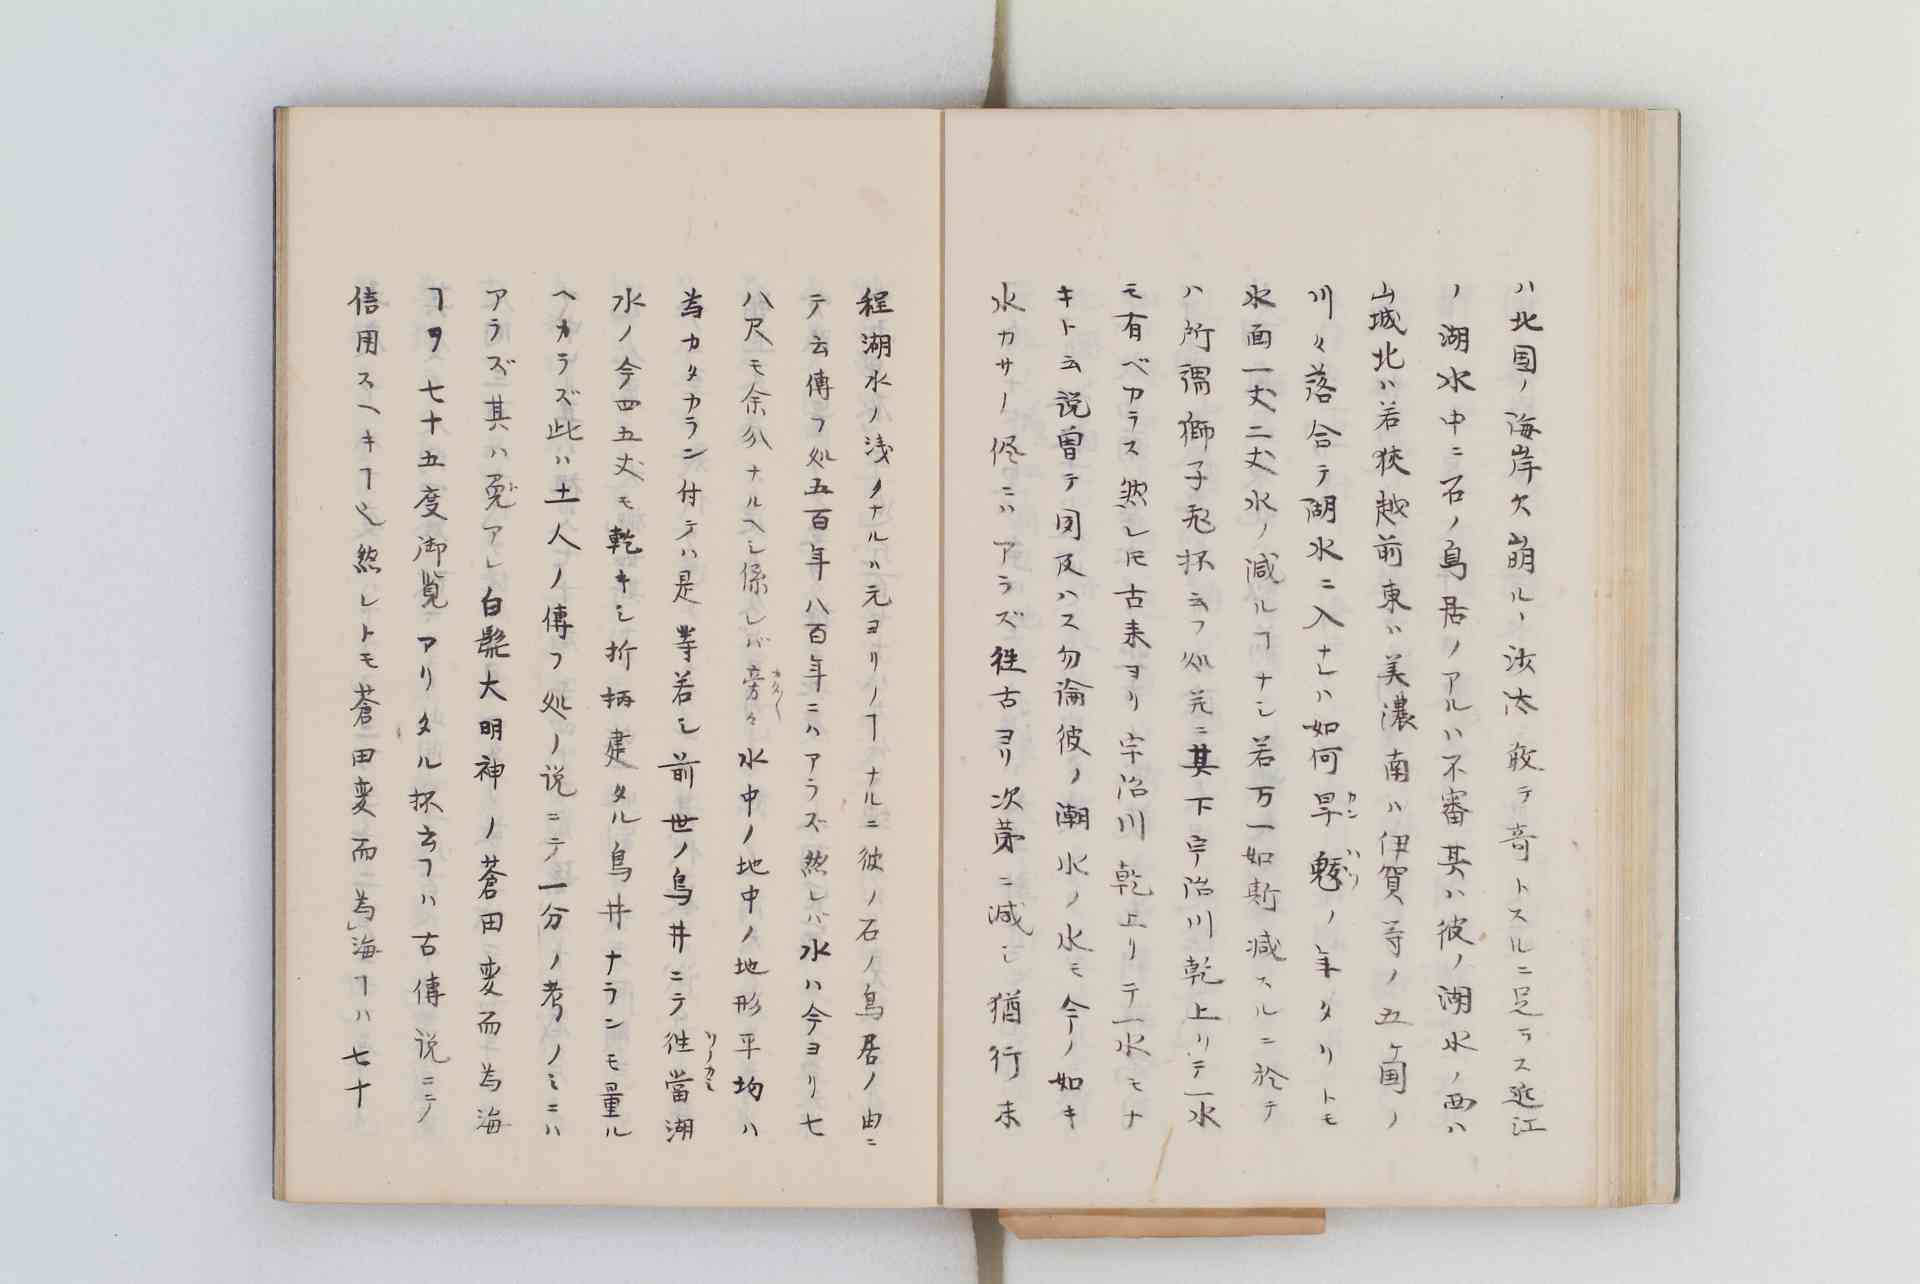 ハ北国ノ海岸欠崩ルヽ沙汰敢テ奇トスルニ足ラス近江
ノ湖水中ニ石ノ鳥居ノアルハ不審其ハ彼ノ湖水ノ西ハ
山城北ハ若狭越前東ハ美濃南ハ伊賀等ノ五ケ国ノ
川々落合テ湖水ニ入ナレハ如何旱カン魃ハツノ年タリトモ
水面一丈二丈水ノ減ルヿナシ若万一如斯減スルニ於テ
ハ所謂獅子飛抔云フ処元ニ其下宇治川乾上リテ一水
モ有ベカラス然レ𪜈古来ヨリ宇治川乾上リテ一水モナ
キト云説曽テ聞及ハス勿論彼ノ潮水ノ水モ今ノ如キ
水カサノ侭ニハアラズ往古ヨリ次第ニ減シ猶行末
程湖水ノ浅クナルハ元ヨリノヿナルニ彼ノ石ノ鳥居ノ由ニ
テ云傳フ処五百年八百年ニハアラズ然レバ水ハ今ヨリ七
八尺モ余分ナルヘシ係レバ旁々水中ノ地中ノ地形平均ハ
為カタカラン付テハ是等若シ前世ノ鳥井ニテ往當湖
水ノ今四五丈モ乾キシ折柄建タル鳥井ナランモ量ル
ヘカラズ此ハ土人ノ傳フ処ノ説ニテ一分ノ考ノミニハ
アラズ其ハ兎アレ白髭大明神ノ蒼田変而為海
ヿヲ七十五度御覧アリタル抔云フハ古傳説ニテ
信用スヘキヿ也然レトモ蒼田変而為海ヿハ七十